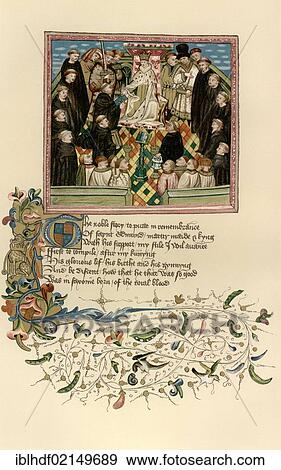 The noble story to putte in remembrance
Of saynt Edmund martir maide & kyng
With his support my stile I wil auance
First to compile after my kunnyng
His glorious lif his birthe and his gynnyng
And be discent how that he that was so good
Was in saxonie born of the roial blood
iblhdf02149689 www.fotosearch.com